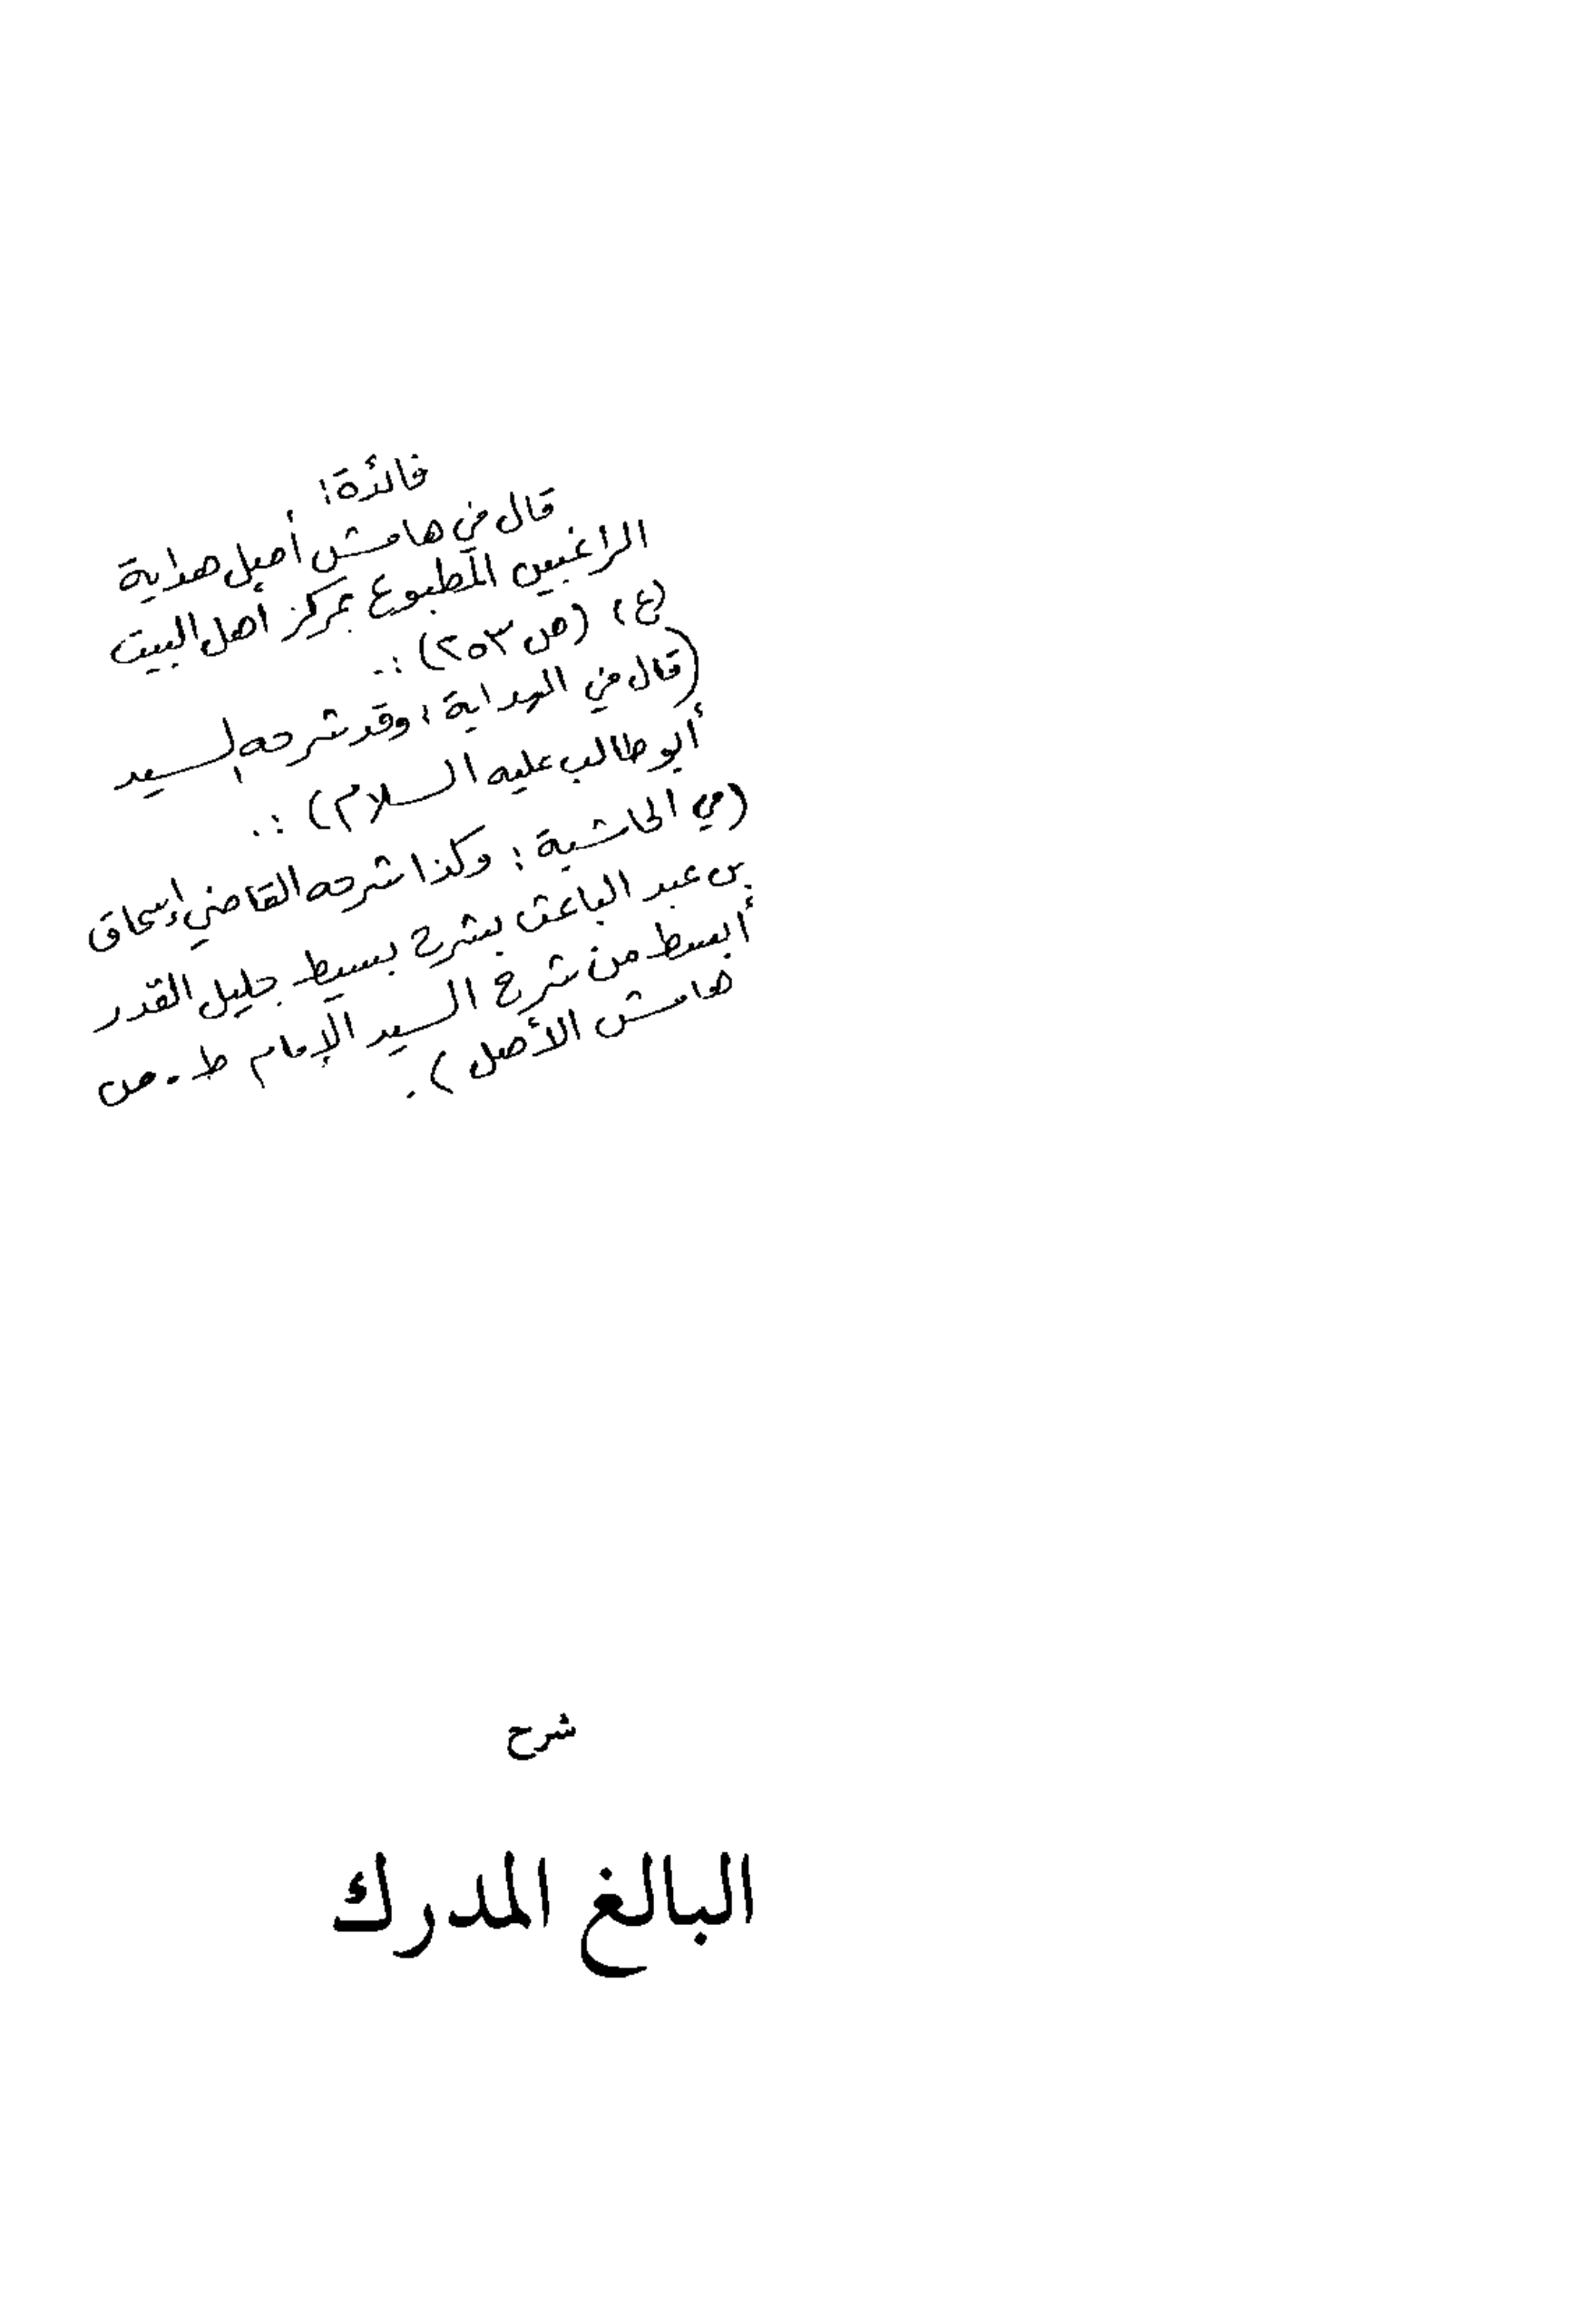 فائدة:
قال في هامش أصل هداية
الراغبين المطبوع بمركز أهل البيت
(ع) (ص ٢٥٣) :.
(قال في الهداية: وقد شرحه السيد
أبو طالب عليه السلام) :.
(في الحاشية: وكذا شرحه القاضي إسحاق
بن عبد الباعث بشرح بسيط جليل القدر
أبسط من شرح السيد الإمام ط. من
هامش الأصل).
شرح
البالغ المدرك